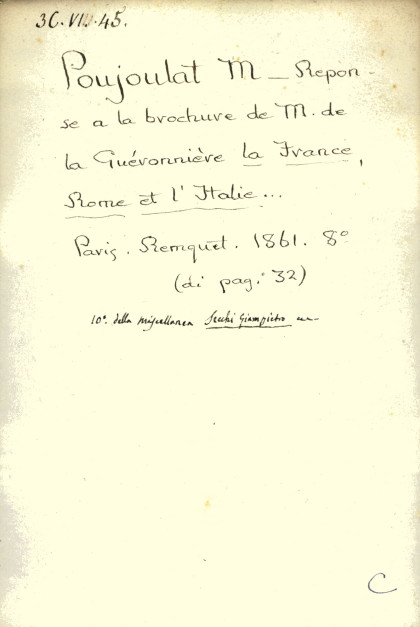 3C.VII.45.
Poujoulat M _ Repon-
se a la brochure de M. de
la Guévonnière la France,
Rome et l' Italie...
Paris. Remquet. 1861. 8º
(di pag. 32)
10ª. della miscellanea Secchi Giampietro
C